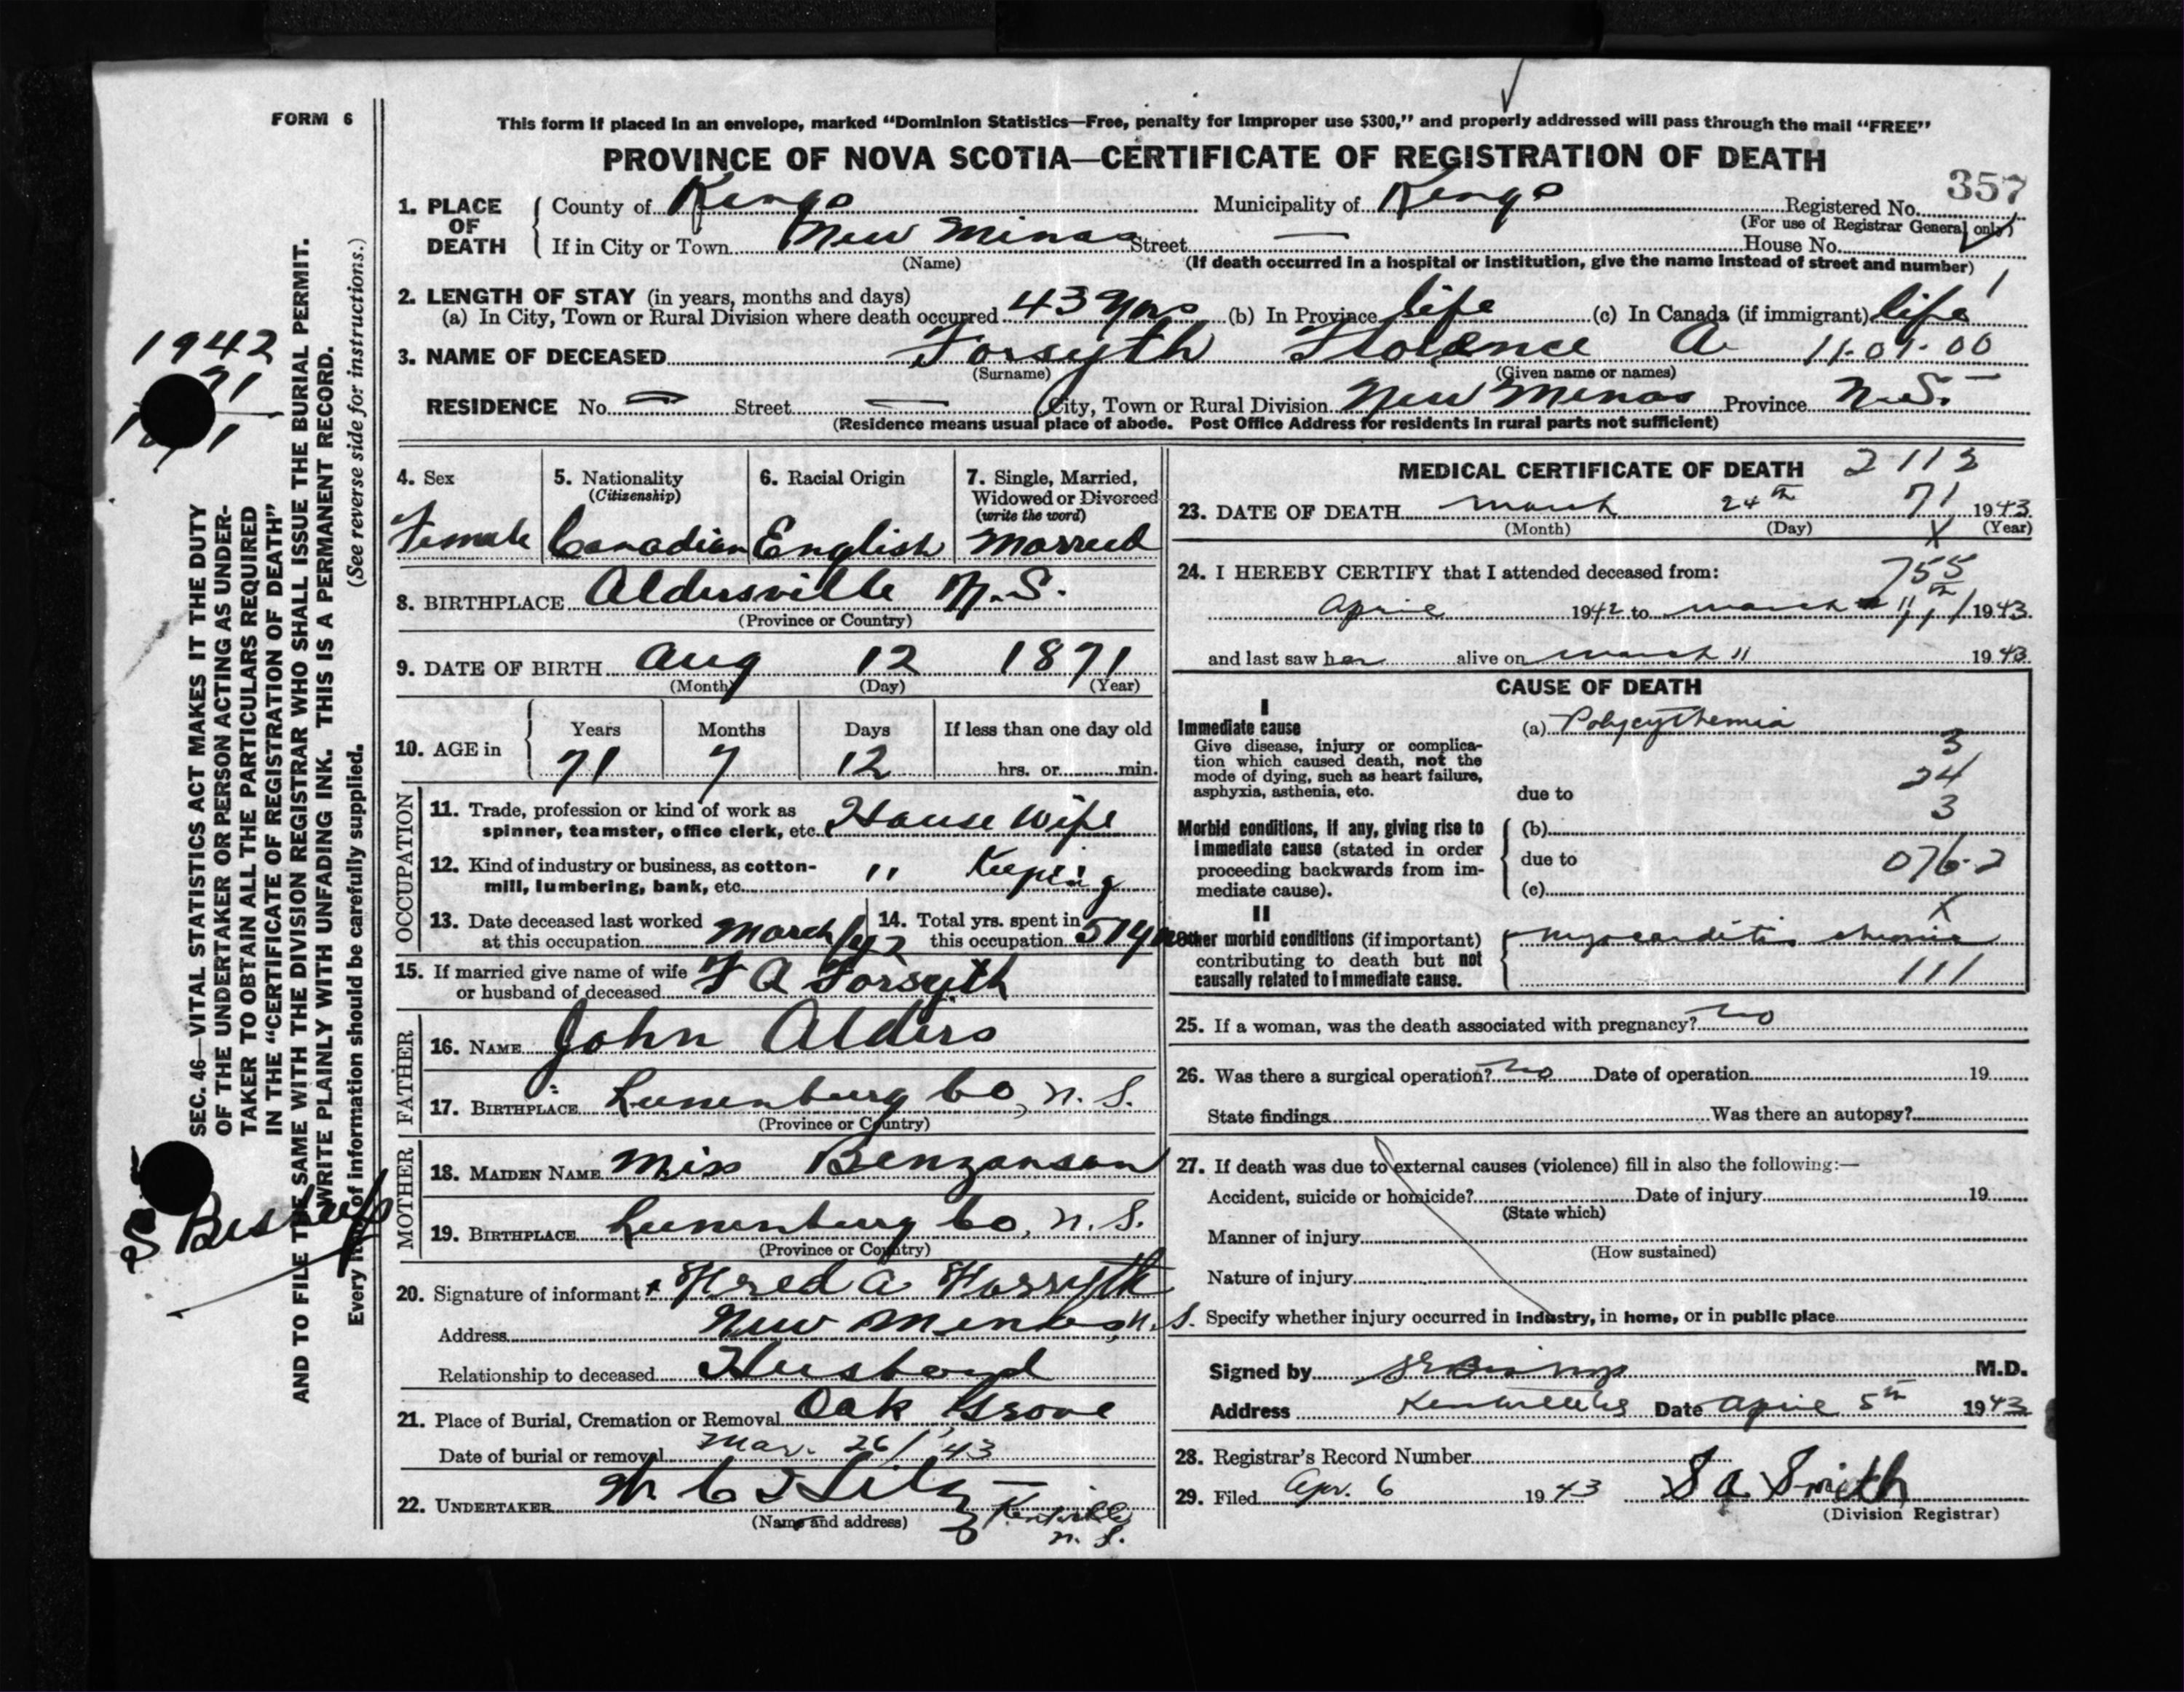 FORM 6
This form if placed in an envelope, marked “Dominion Statistics—Free, penalty for improper use $300,” and properly addressed will pass through the mail “FREE”
PROVINCE OF NOVA SCOTIA—CERTIFICATE OF REGISTRATION OF DEATH
357
1. PLACE OF DEATH County of Kings Municipality of Kings Registered No.
(For use of Registrar General only)
If in City or Town New Minas Street — House No.
(Name) (If death occurred in a hospital or institution, give the name instead of street and number)
2. LENGTH OF STAY (in years, months and days)
(a) In City, Town or Rural Division where death occurred 43 yrs (b) In Province life (c) In Canada (if immigrant) life
3. NAME OF DECEASED Forsyth Florence A 11-01-00
(Surname) (Given name or names)
RESIDENCE No. — Street — City, Town or Rural Division New Minas Province N.S.
(Residence means usual place of abode. Post Office Address for residents in rural parts not sufficient)
4. Sex Female
5. Nationality (Citizenship) Canadian
6. Racial Origin English
7. Single, Married, Widowed or Divorced (write the word) Married
8. BIRTHPLACE Aldersville N.S.
(Province or Country)
9. DATE OF BIRTH Aug 12 1871
(Month) (Day) (Year)
10. AGE in Years Months Days If less than one day old
71 7 12 hrs. or min.
OCCUPATION
11. Trade, profession or kind of work as
spinner, teamster, office clerk, etc. House Wife
12. Kind of industry or business, as cotton-
mill, lumbering, bank, etc. " Keeping
13. Date deceased last worked
at this occupation March/42
14. Total yrs. spent in
this occupation 51 yrs
15. If married give name of wife
or husband of deceased F A Forsyth
FATHER
16. NAME John Alders
17. BIRTHPLACE Lunenburg Co, N.S.
(Province or Country)
MOTHER
18. MAIDEN NAME Miss Benzanson
19. BIRTHPLACE Lunenburg Co, N.S.
(Province or Country)
20. Signature of informant x Fred A Forsyth
Address New Minas, N.S.
Relationship to deceased Husband
21. Place of Burial, Cremation or Removal Oak Grove
Date of burial or removal Mar. 26/'43
22. UNDERTAKER W C Hiltz
(Name and address) Kentville
N.S.
MEDICAL CERTIFICATE OF DEATH 2112
23. DATE OF DEATH March 24th 71 1943
(Month) (Day) X (Year)
24. I HEREBY CERTIFY that I attended deceased from: 755
April 1942 to March 11th 1943
and last saw her alive on March 11 1943
CAUSE OF DEATH
I
Immediate cause
Give disease, injury or complica-
tion which caused death, not the
mode of dying, such as heart failure,
asphyxia, asthenia, etc.
(a) Polycythemia
3
24
due to
3
Morbid conditions, if any, giving rise to
immediate cause (stated in order
proceeding backwards from im-
mediate cause).
(b)
due to 076.2
(c)
X
II
Other morbid conditions (if important)
contributing to death but not
causally related to immediate cause.
myocarditis chronic
111
25. If a woman, was the death associated with pregnancy? no
26. Was there a surgical operation? no Date of operation 19
State findings Was there an autopsy?
27. If death was due to external causes (violence) fill in also the following:—
Accident, suicide or homicide? Date of injury 19
(State which)
Manner of injury
(How sustained)
Nature of injury
Specify whether injury occurred in industry, in home, or in public place
Signed by M.D.
Address Kentville Date April 5th 1943
28. Registrar's Record Number
29. Filed Apr. 6 1943 S A Smith
(Division Registrar)
SEC. 46—VITAL STATISTICS ACT MAKES IT THE DUTY
OF THE UNDERTAKER OR PERSON ACTING AS UNDER-
TAKER TO OBTAIN ALL THE PARTICULARS REQUIRED
IN THE “CERTIFICATE OF REGISTRATION OF DEATH”
AND TO FILE THE SAME WITH THE DIVISION REGISTRAR WHO SHALL ISSUE THE BURIAL PERMIT.
WRITE PLAINLY WITH UNFADING INK. THIS IS A PERMANENT RECORD.
Every item of information should be carefully supplied. (See reverse side for instructions.)
1942
71